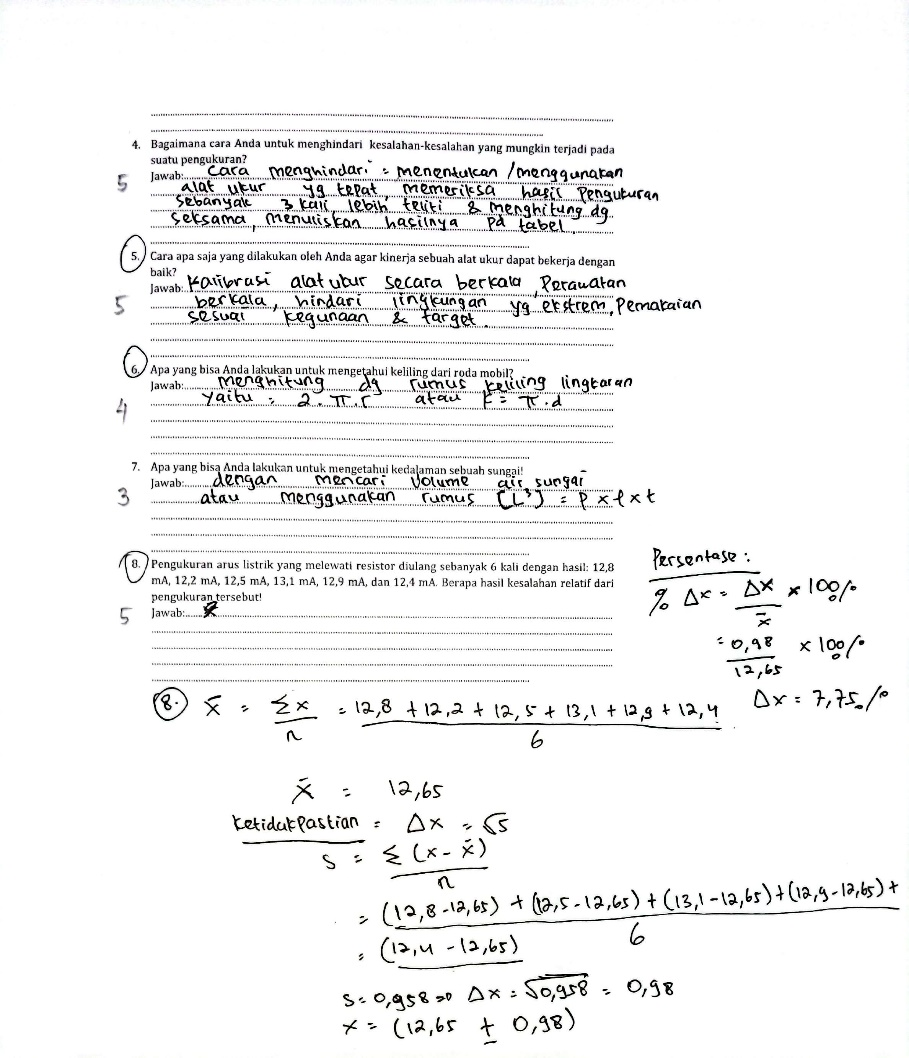 4. Bagaimana cara Anda untuk menghindari kesalahan-kesalahan yang mungkin terjadi pada
suatu pengukuran?
Jawab: Cara menghindari : menentukan / menggunakan
5
alat ukur yg tepat memeriksa hasil Pengukuran
Sebanyak 3 kali lebih teliti & menghitung dg
seksama, menuliskan hasilnya pd tabel.
5. Cara apa saja yang dilakukan oleh Anda agar kinerja sebuah alat ukur dapat bekerja dengan
baik?
Jawab: Kalibrasi alat ukur secara berkala, Perawatan
5
berkala, hindari lingkungan yg ekstrem, Pemakaian
sesuai kegunaan & target.
6. Apa yang bisa Anda lakukan untuk mengetahui keliling dari roda mobil?
Jawab: menghitung dg rumus keliling lingkaran
4
Yaitu : 2 . π . r atau k = π . d
7. Apa yang bisa Anda lakukan untuk mengetahui kedalaman sebuah sungai!
Jawab: dengan mencari Volume air sungai
3
atau menggunakan rumus (L³) = p x l x t
8. Pengukuran arus listrik yang melewati resistor diulang sebanyak 6 kali dengan hasil: 12,8
mA, 12,2 mA, 12,5 mA, 13,1 mA, 12,9 mA, dan 12,4 mA. Berapa hasil kesalahan relatif dari
pengukuran tersebut!
5
Jawab:
Persentase :
% Δx = Δx / x̄ x 100%
= 0,98 / 12,65 x 100%
Δx = 7,75%
8. x̄ = Σx / n = 12,8 + 12,2 + 12,5 + 13,1 + 12,9 + 12,4 / 6
x̄ = 12,65
Ketidakpastian = Δx = √s
s = Σ (x - x̄) / n
= (12,8-12,65) + (12,5-12,65) + (13,1-12,65) + (12,9-12,65) + / 6
= (12,4 - 12,65)
s = 0,958 => Δx = √0,958 = 0,98
x = (12,65 ± 0,98)